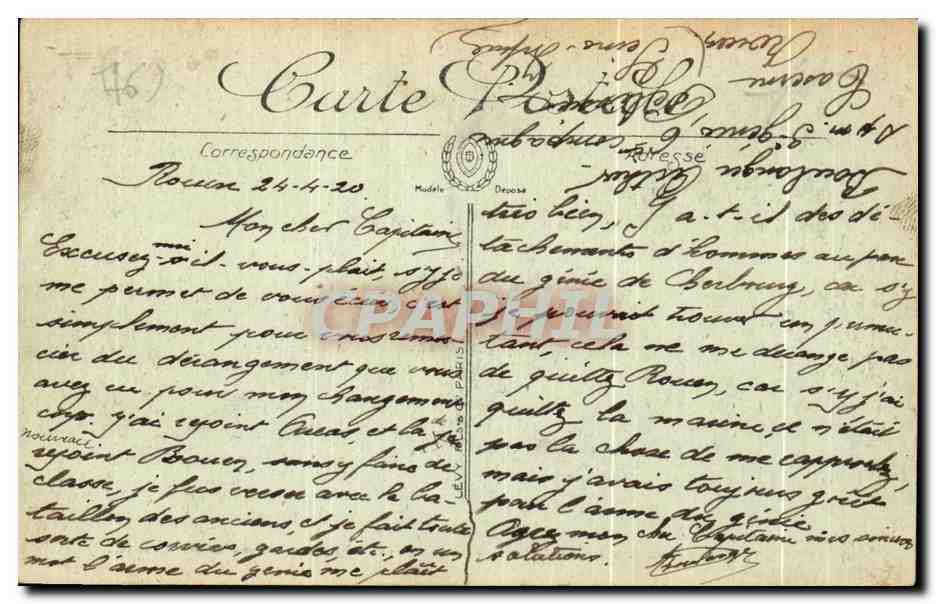 (76)
Carte Postale
Correspondance
Adresse
Modèle Déposé
Rouen 24-4-20
Mon cher Capitaine
Excusez-moi s'il-vous-plait, s'y je
me permet de vous écrire c'est
simplement pour vous remer
cier du dérangement que vous
avez eu pour mon changement
corp. j'ai rejoint Arras, et la j'ai
nouveau
rejoint Rouen, sans y faire de
classe, je fus verser avec le ba-
taillon des anciens, et je fait toute
sorte de corvées, gardes, etc, en un
mot l'arme du génie me plaît
très bien, Y a-t-il des dé-
tachements d'hommes au parc
du génie de Cherbourg, car s'y
je pouvait trouver un permu-
tant, cela ne me dérange pas
de quittez Rouen, car s'y j'ai
quittez la marine, ce n'était
pas la chose de me rapprochez,
mais j'avais toujours goût
pour l'arme du génie
Agréez mon cher Capitaine mes sincères
solutations.
Boulanger Arthur
3 génie, 6 compagnie
Caserne
Rouen (Seine-Inférieure)
LEVY FILS & Cie PARIS
CPAPHIL